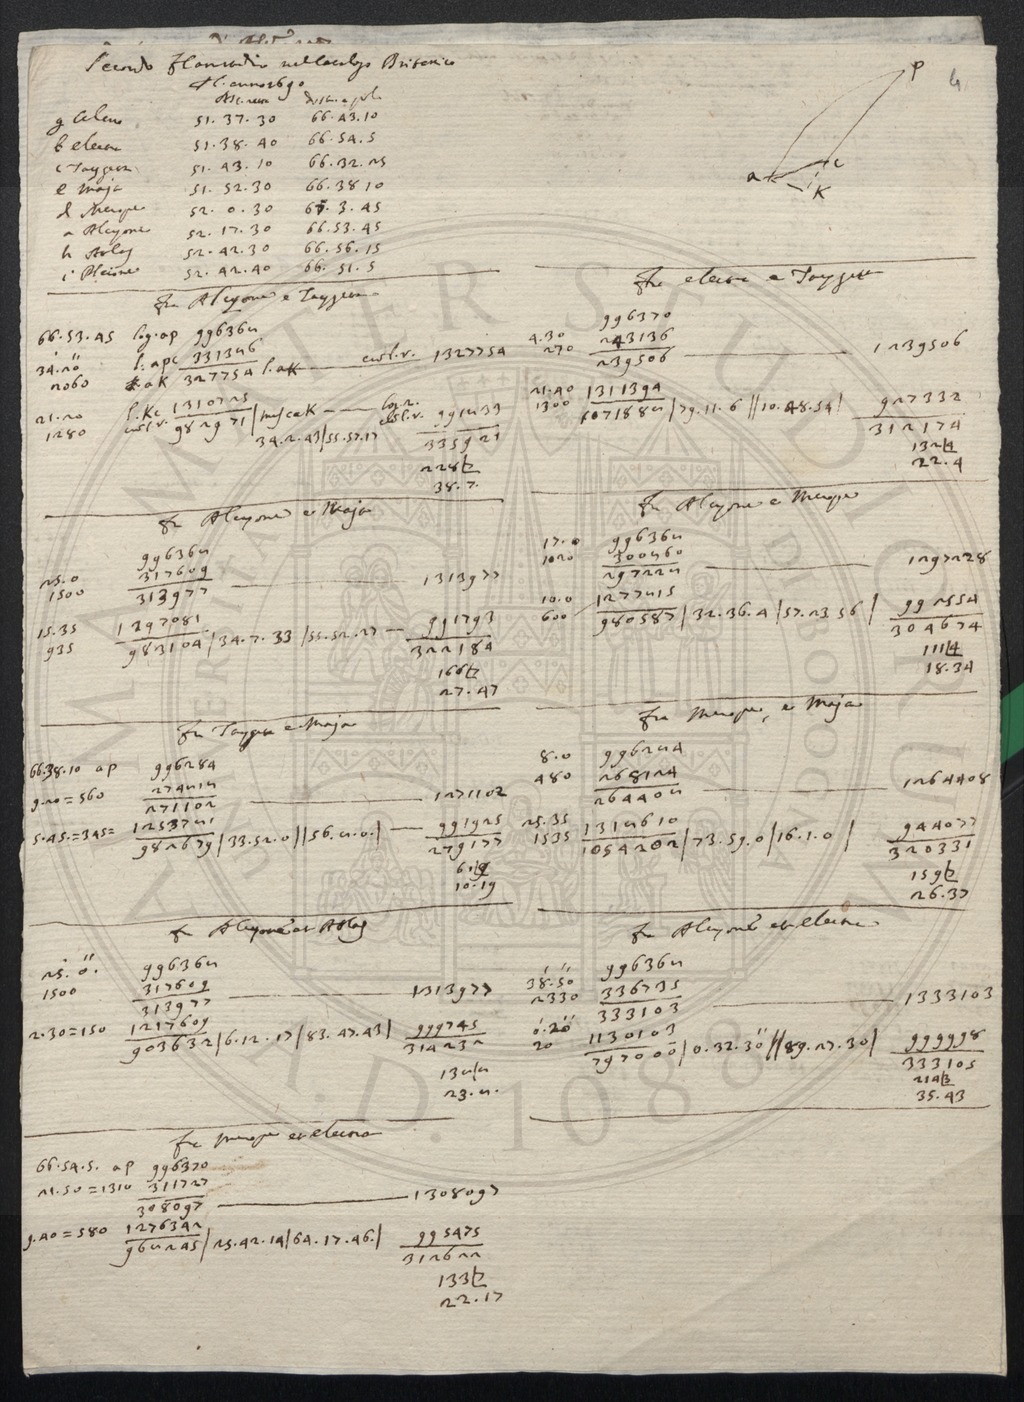 Secondo Flamsteedio nel Catalogo Britanico
Al. anno 1690
Asc. retta dist. a polo
g Celeno 51. 37. 30 66. 43. 10
b electra 51. 38. 40 66. 54. 5
c Taygeta 51. 43. 10 66. 32. 25
e Maja 51. 52. 30 66. 38 10
d Merope 52. 0. 30 67. 3. 45
a Alcyone 52. 17. 30 66. 53. 45
h Atlas 52. 42. 30 66. 56. 15
i Pleione 52. 42. 40 66. 51. 5
P
4
a c
K
fra Alcyone e Taygeta
66. 53. 45 log. ap 996362
34. 20 l. apc 331346
2060 l. aK 327754 l. aK 1327754
21. 20 l. Kc 1310725
1280 982971 / ang caK 991833
34. 2. 43 / 55. 57. 17 335921
228/7
38. 7.
fra electra e Taygeta
996370
4. 30 243136
270 239506 1239506
21. 40 1311394
1300 1071888 / 79. 11. 6 // 10. 48. 54 / 927332
312174
132/4
22. 4
fra Alcyone e Maja
996362
25. 0 317609
1500 313977 1313977
15. 35 1297081
935 983104 / 34. 7. 33 / 55. 52. 27 991793
322184
166/7
27. 47
fra Alcyone e Merope
17. 0 996362
1020 300860
297222 1297228
10. 0 1277815
600 980587 / 32. 36. 4 / 57. 23 56 / 992554
304674
111/4
18. 34
fra Taygeta e Maja
66. 38. 10 ap 996284
9. 20 = 560 274818
271102 1271102
5. 45. = 345 = 1253781
982679 / 33. 52. 0 // 56. 8. 0. / 991925
279177
61/9
10. 19
fra Merope, e Maja
8. 0 996284
480 268124
264408 1264408
25. 35 1318610
1535 1054202 / 73. 59. 0 / 16. 1. 0 / 944077
320331
159/7
26. 37
fra Alcyone et Atlas
25. 0. 996362
1500 317609
313977 1313977
2. 30 = 150 1217609
903632 / 6. 12. 17 / 83. 47. 43 / 999745
314232
138/8
23. 8.
fra Alcyone et electra
996362
38. 50 336735
2330 333103 1333103
0. 20 1130103
20 797000 / 0. 32. 30 // 89. 27. 30 / 999998
333105
214/3
35. 43
fra Merope et electra
66. 54. 5. ap 996370
21. 50 = 1310 311727
308097 1308097
9. 40 = 580 1276342
968245 / 25. 42. 14 / 64. 17. 46. / 995475
312622
133/7
22. 17